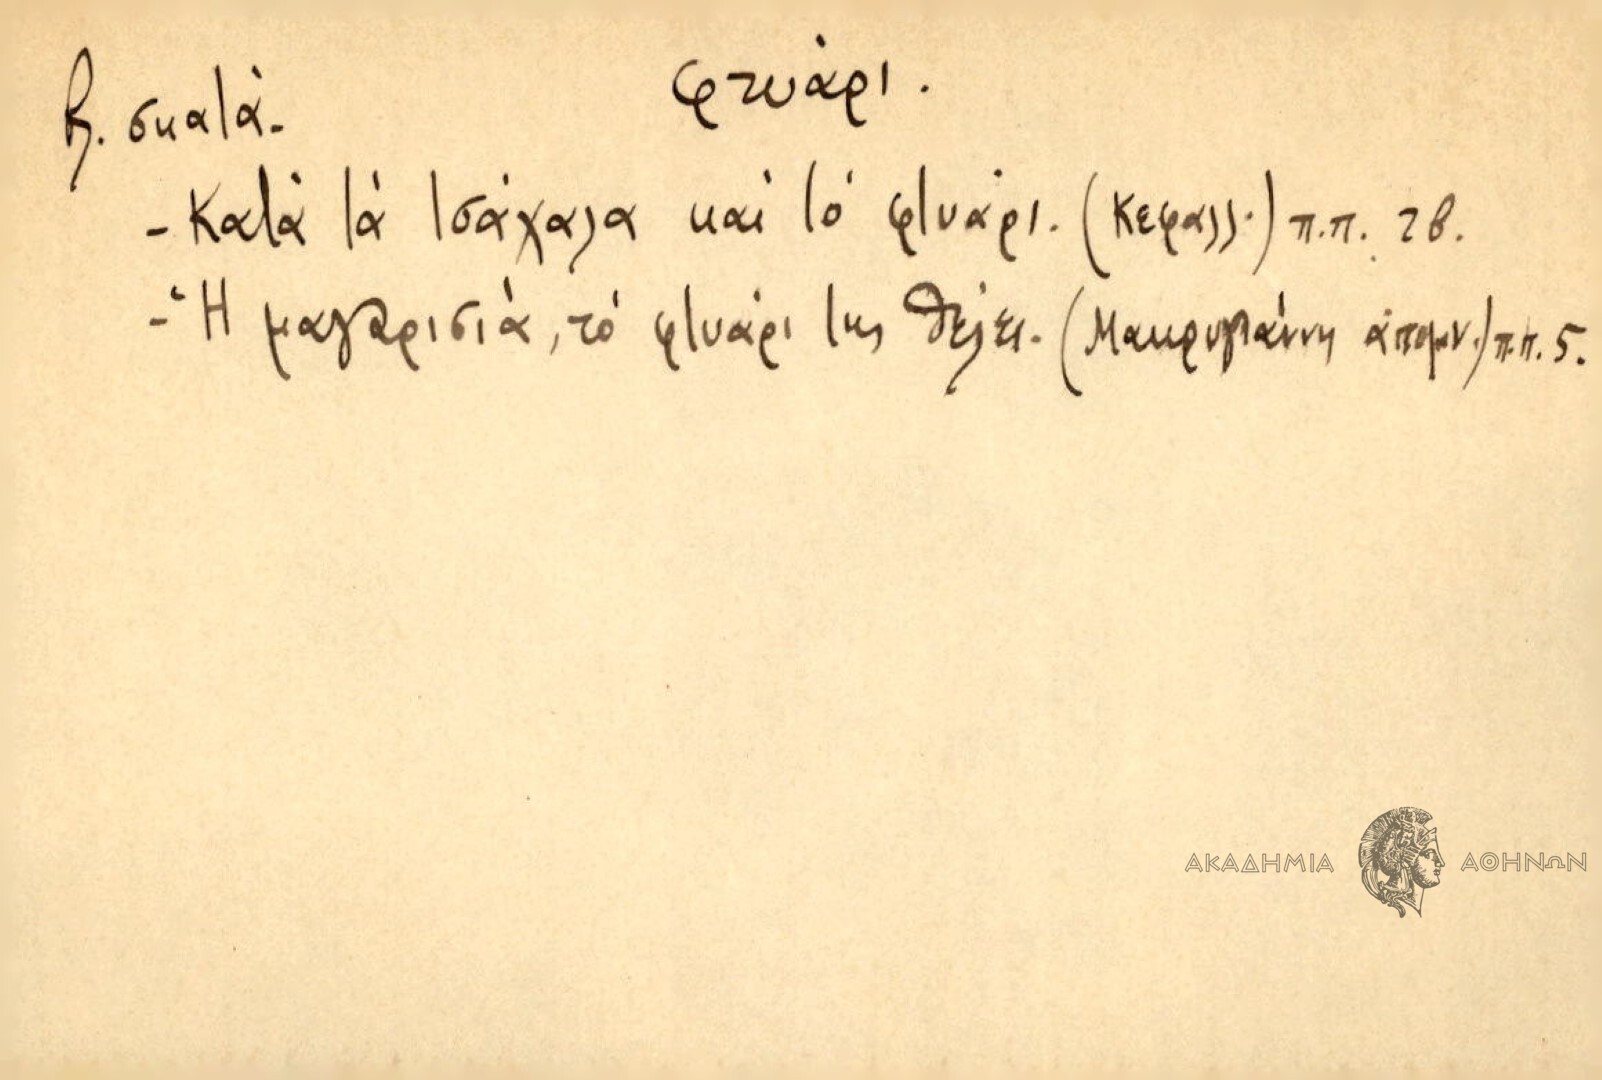 φτυάρι.
β. σκατά.
- Κατά τά τσάχαλα καί τό φτυάρι. (Κεφαλλ.) π.π. 2β.
- Ἡ μαγαρισιά, τό φτυάρι της θέλει. (Μακρυγιάννη ἀπομν.) π.π. 5.
ΑΚΑΔΗΜΙΑ ΑΘΗΝΩΝ